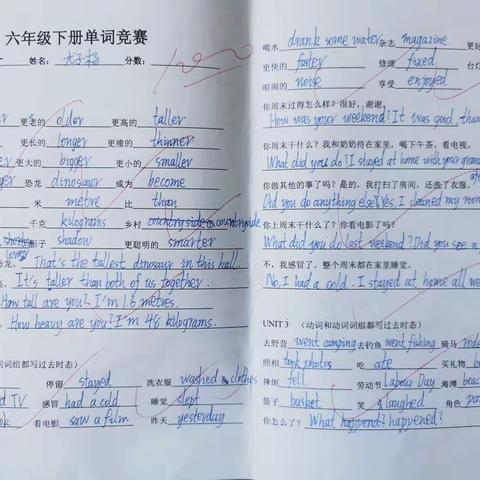 六年级下册单词竞赛
姓名: 分数: 100
更老的 older 更高的 taller
更长的 longer 更瘦的 thinner
更大的 bigger 更小的 smaller
恐龙 dinosaur 成为 become
米 metre 比 than
千克 kilograms 乡村 countryside
影子 shadow 更聪明的 smarter
That's the tallest dinosaur in this hall.
It's taller than both of us together.
How tall are you? I'm 1.6 metres.
How heavy are you? I'm 48 kilograms.
词组都写过去时态)
停留 stayed 洗衣服 washed clothes
TV 感冒 had a cold 睡觉 slept
看电影 saw a film 昨天 yesterday
喝水 drank some water 杂志 magazine 更好
更快的 faster 修理 fixed 台灯
喧闹的 noise 享受 enjoyed
你周末过得怎么样? 很好, 谢谢。
How was your weekend? It was good, than
你周末干什么了? 我和奶奶待在家里, 喝下午茶、看电视。
What did you do? I stayed at home with your grand
你做其他的事了吗? 是的, 我打扫了房间, 还洗了衣服。
Did you do anything else? Yes, I cleaned my room
你上周末干什么了? 你看电影了吗?
What did you do last weekend? Did you see a
不, 我感冒了, 整个周末都在家里睡觉。
No, I had a cold. I stayed at home all we
UNIT 3 (动词和动词词组都写过去时态)
去野营 went camping 去钓鱼 went fishing 骑马 rode
照相 took photos 吃 ate 买礼物
摔倒 fell 劳动节 Labour Day 海滩 beac
篮子 basket 笑 laughed 角色
你怎么了? What happened?